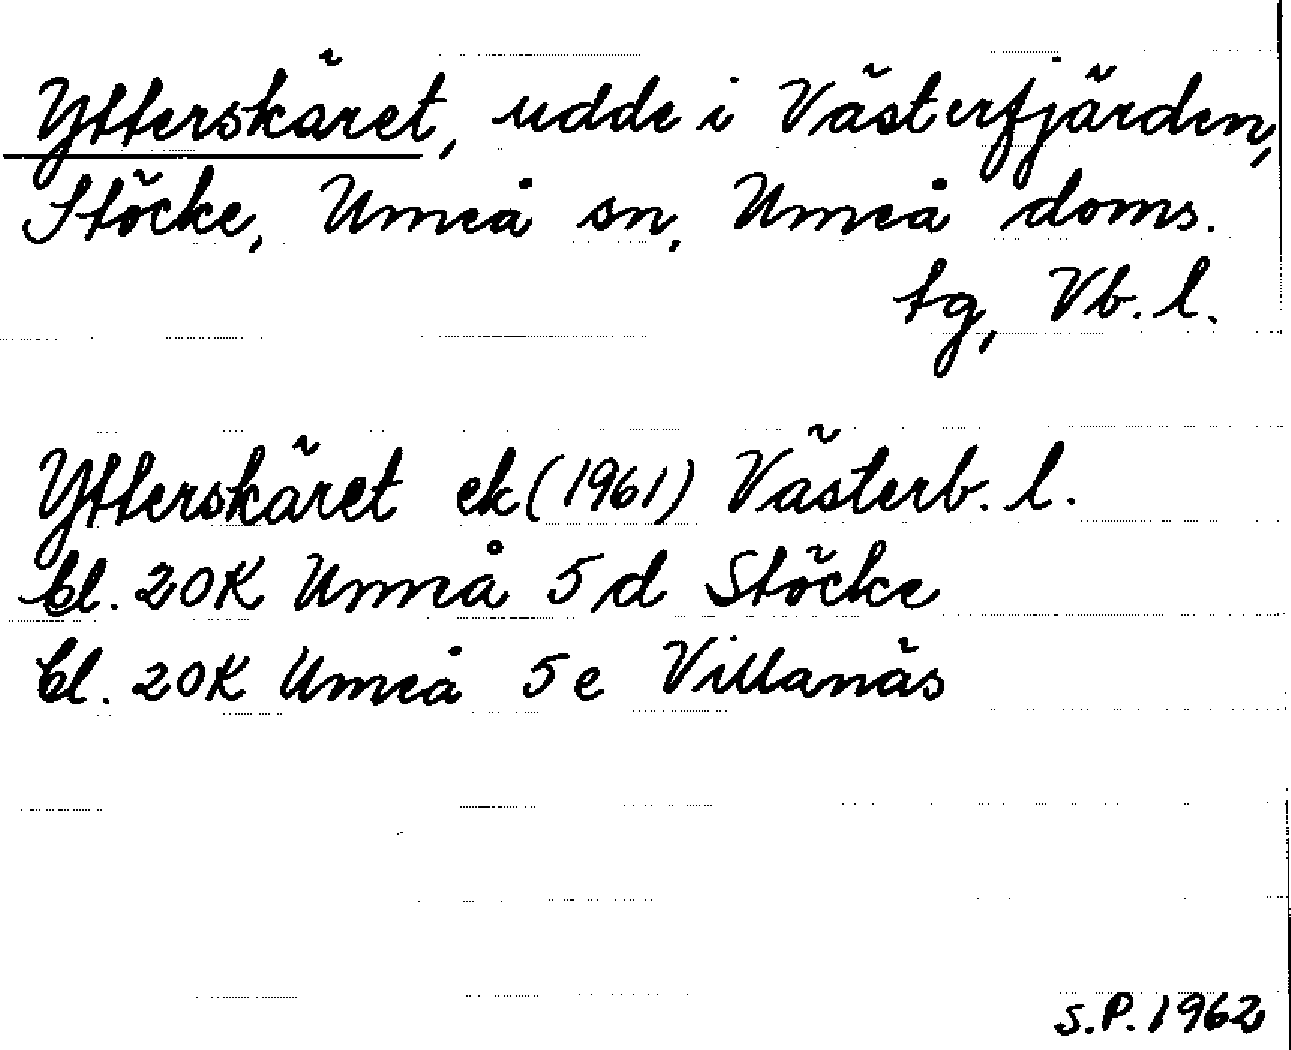 Ytterskäret, udde i Västerfjärden,
Stöcke, Umeå sn, Umeå doms.
tg, Vb. l.
Ytterskäret ek (1961) Västerb. l.
bl. 20K Umeå 5d Stöcke
bl. 20K Umeå 5e Villanäs
S.P. 1962